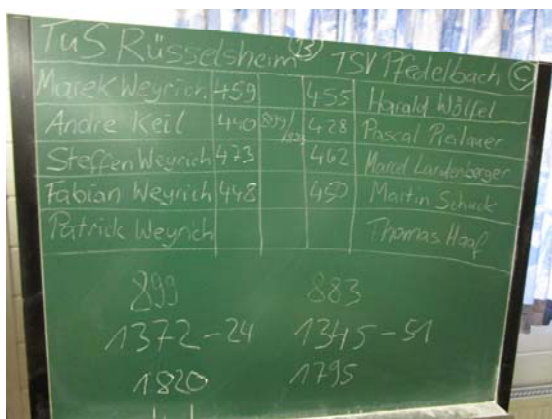 TuS Rüsselsheim B TSV Pfedelbach C
Marek Weyrich 459 455 Harald Wölfel
Andre Keil 440 428 Pascal
Steffen Weyrich 473 462 Marcel Landenberger
Fabian Weyrich 448 450 Martin Schuck
Patrick Weyrich Thomas Haaf
899 883
1372-24 1345-51
1820 1795